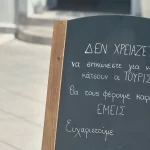 ΔΕΝ ΧΡΕΙΑΖΕ
να σπρώχνετε για να
κάτσουν οι ΤΟΥΡΙΣ
θα τους φέρουμε καρ
ΕΜΕΙΣ
Ευχαριστούμε